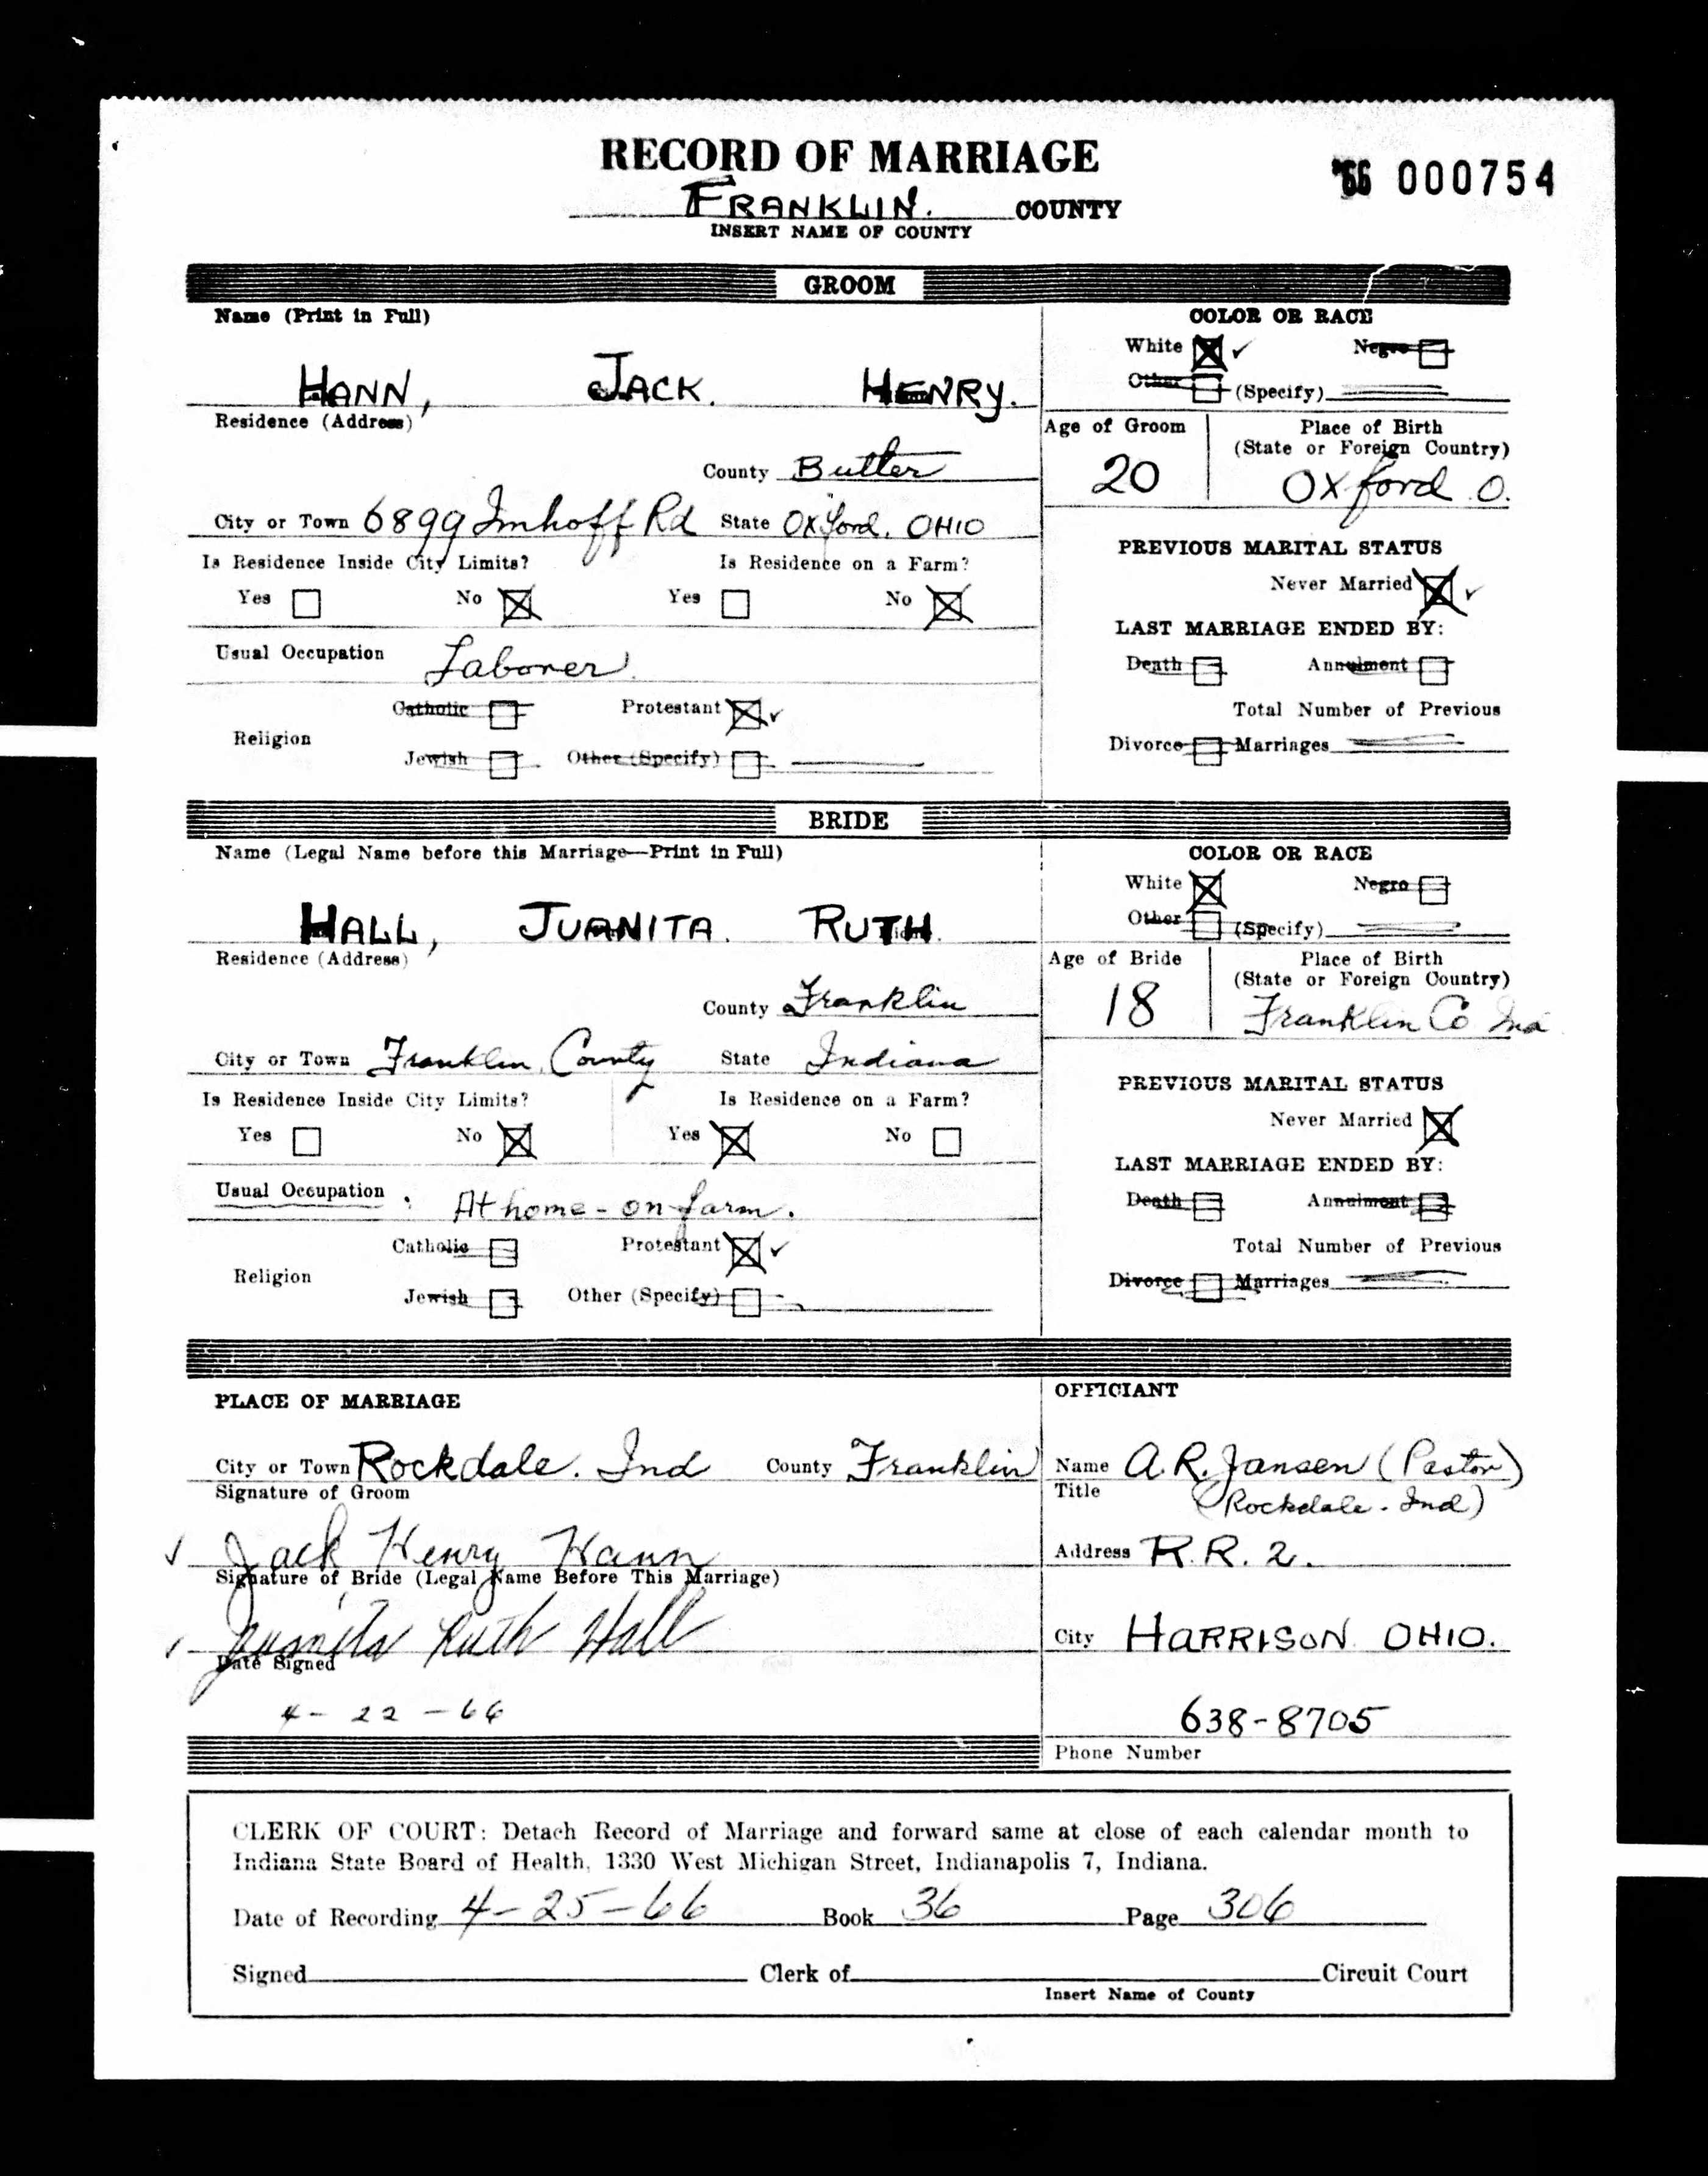 RECORD OF MARRIAGE
'66 000754
FRANKLIN. COUNTY
INSERT NAME OF COUNTY
GROOM
Name (Print in Full)
HANN, JACK. HENRY.
COLOR OR RACE
White Negro
Other (Specify)
Residence (Address)
County Butler
Age of Groom
20
Place of Birth
(State or Foreign Country)
Oxford O.
City or Town 6899 Imhoff Rd State Oxford, OHIO
Is Residence Inside City Limits? Is Residence on a Farm?
Yes No Yes No
PREVIOUS MARITAL STATUS
Never Married
LAST MARRIAGE ENDED BY:
Usual Occupation Laborer
Death Annulment
Catholic Protestant
Religion
Jewish Other (Specify)
Total Number of Previous
Divorce Marriages
BRIDE
Name (Legal Name before this Marriage—Print in Full)
HALL, JUANITA. RUTH.
COLOR OR RACE
White Negro
Other (Specify)
Residence (Address)
County Franklin
Age of Bride
18
Place of Birth
(State or Foreign Country)
Franklin Co Ind
City or Town Franklin County State Indiana
Is Residence Inside City Limits? Is Residence on a Farm?
Yes No Yes No
PREVIOUS MARITAL STATUS
Never Married
LAST MARRIAGE ENDED BY:
Usual Occupation : At home - on farm.
Death Annulment
Catholic Protestant
Religion
Jewish Other (Specify)
Total Number of Previous
Divorce Marriages
PLACE OF MARRIAGE
City or Town Rockdale. Ind County Franklin
Signature of Groom
Jack Henry Hann
Signature of Bride (Legal Name Before This Marriage)
Juanita Ruth Hall
Date Signed
4 - 22 - 66
OFFICIANT
Name A. R. Jansen (Pastor)
Title (Rockdale. Ind)
Address R. R. 2.
City HARRISON OHIO.
638-8705
Phone Number
CLERK OF COURT: Detach Record of Marriage and forward same at close of each calendar month to
Indiana State Board of Health, 1330 West Michigan Street, Indianapolis 7, Indiana.
Date of Recording 4-25-66 Book 36 Page 306
Signed Clerk of Circuit Court
Insert Name of County